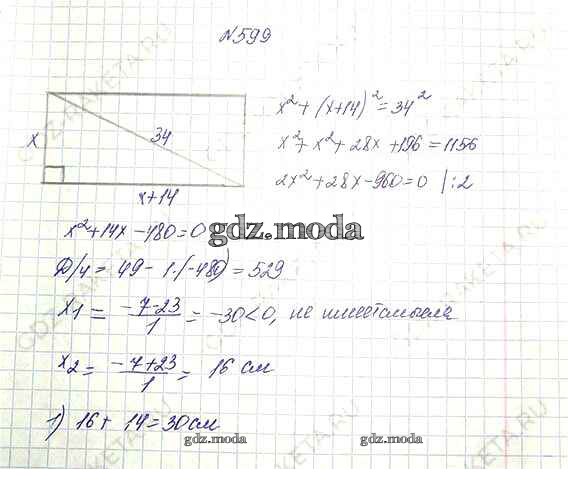 N599
x² + (x+14)² = 34²
x
34
x² + x² + 28x + 196 = 1156
x+14
2x² + 28x - 960 = 0 | :2
x² + 14x - 480 = 0
gdz.moda
D/4 = 49 - 1·(-480) = 529
x1 = -7-23/1 = -30 < 0, не имеет смысла
x2 = -7+23/1 = 16 см
1) 16 + 14 = 30 см
gdz.moda
gdz.moda